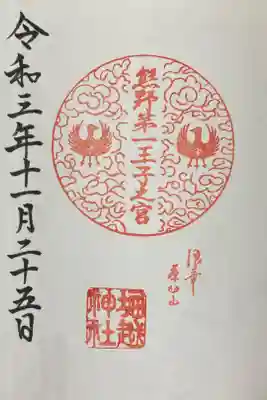 熊野第一王子之宮
堀越神社
令和三年十一月二十五日